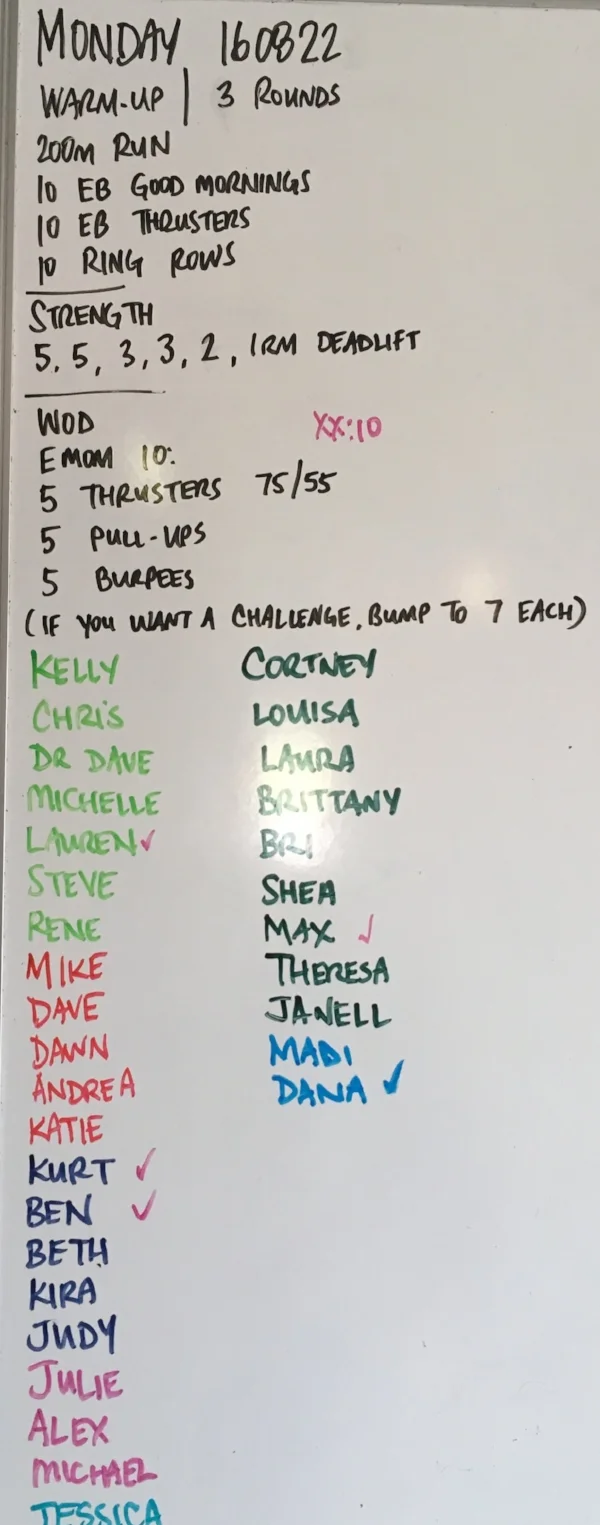 MONDAY 160822
WARM-UP | 3 ROUNDS
200M RUN
10 EB GOOD MORNINGS
10 EB THRUSTERS
10 RING ROWS
STRENGTH
5, 5, 3, 3, 2, 1RM DEADLIFT
WOD XX:10
EMOM 10:
5 THRUSTERS 75/55
5 PULL-UPS
5 BURPEES
(IF YOU WANT A CHALLENGE, BUMP TO 7 EACH)
KELLY
CHRIS
DR DAVE
MICHELLE
LAUREN ✓
STEVE
RENE
MIKE
DAVE
DAWN
ANDREA
KATIE
KURT ✓
BEN ✓
BETH
KIRA
JUDY
JULIE
ALEX
MICHAEL
JESSICA
CORTNEY
LOUISA
LAURA
BRITTANY
BRI
SHEA
MAX ✓
THERESA
JANELL
MADI
DANA ✓